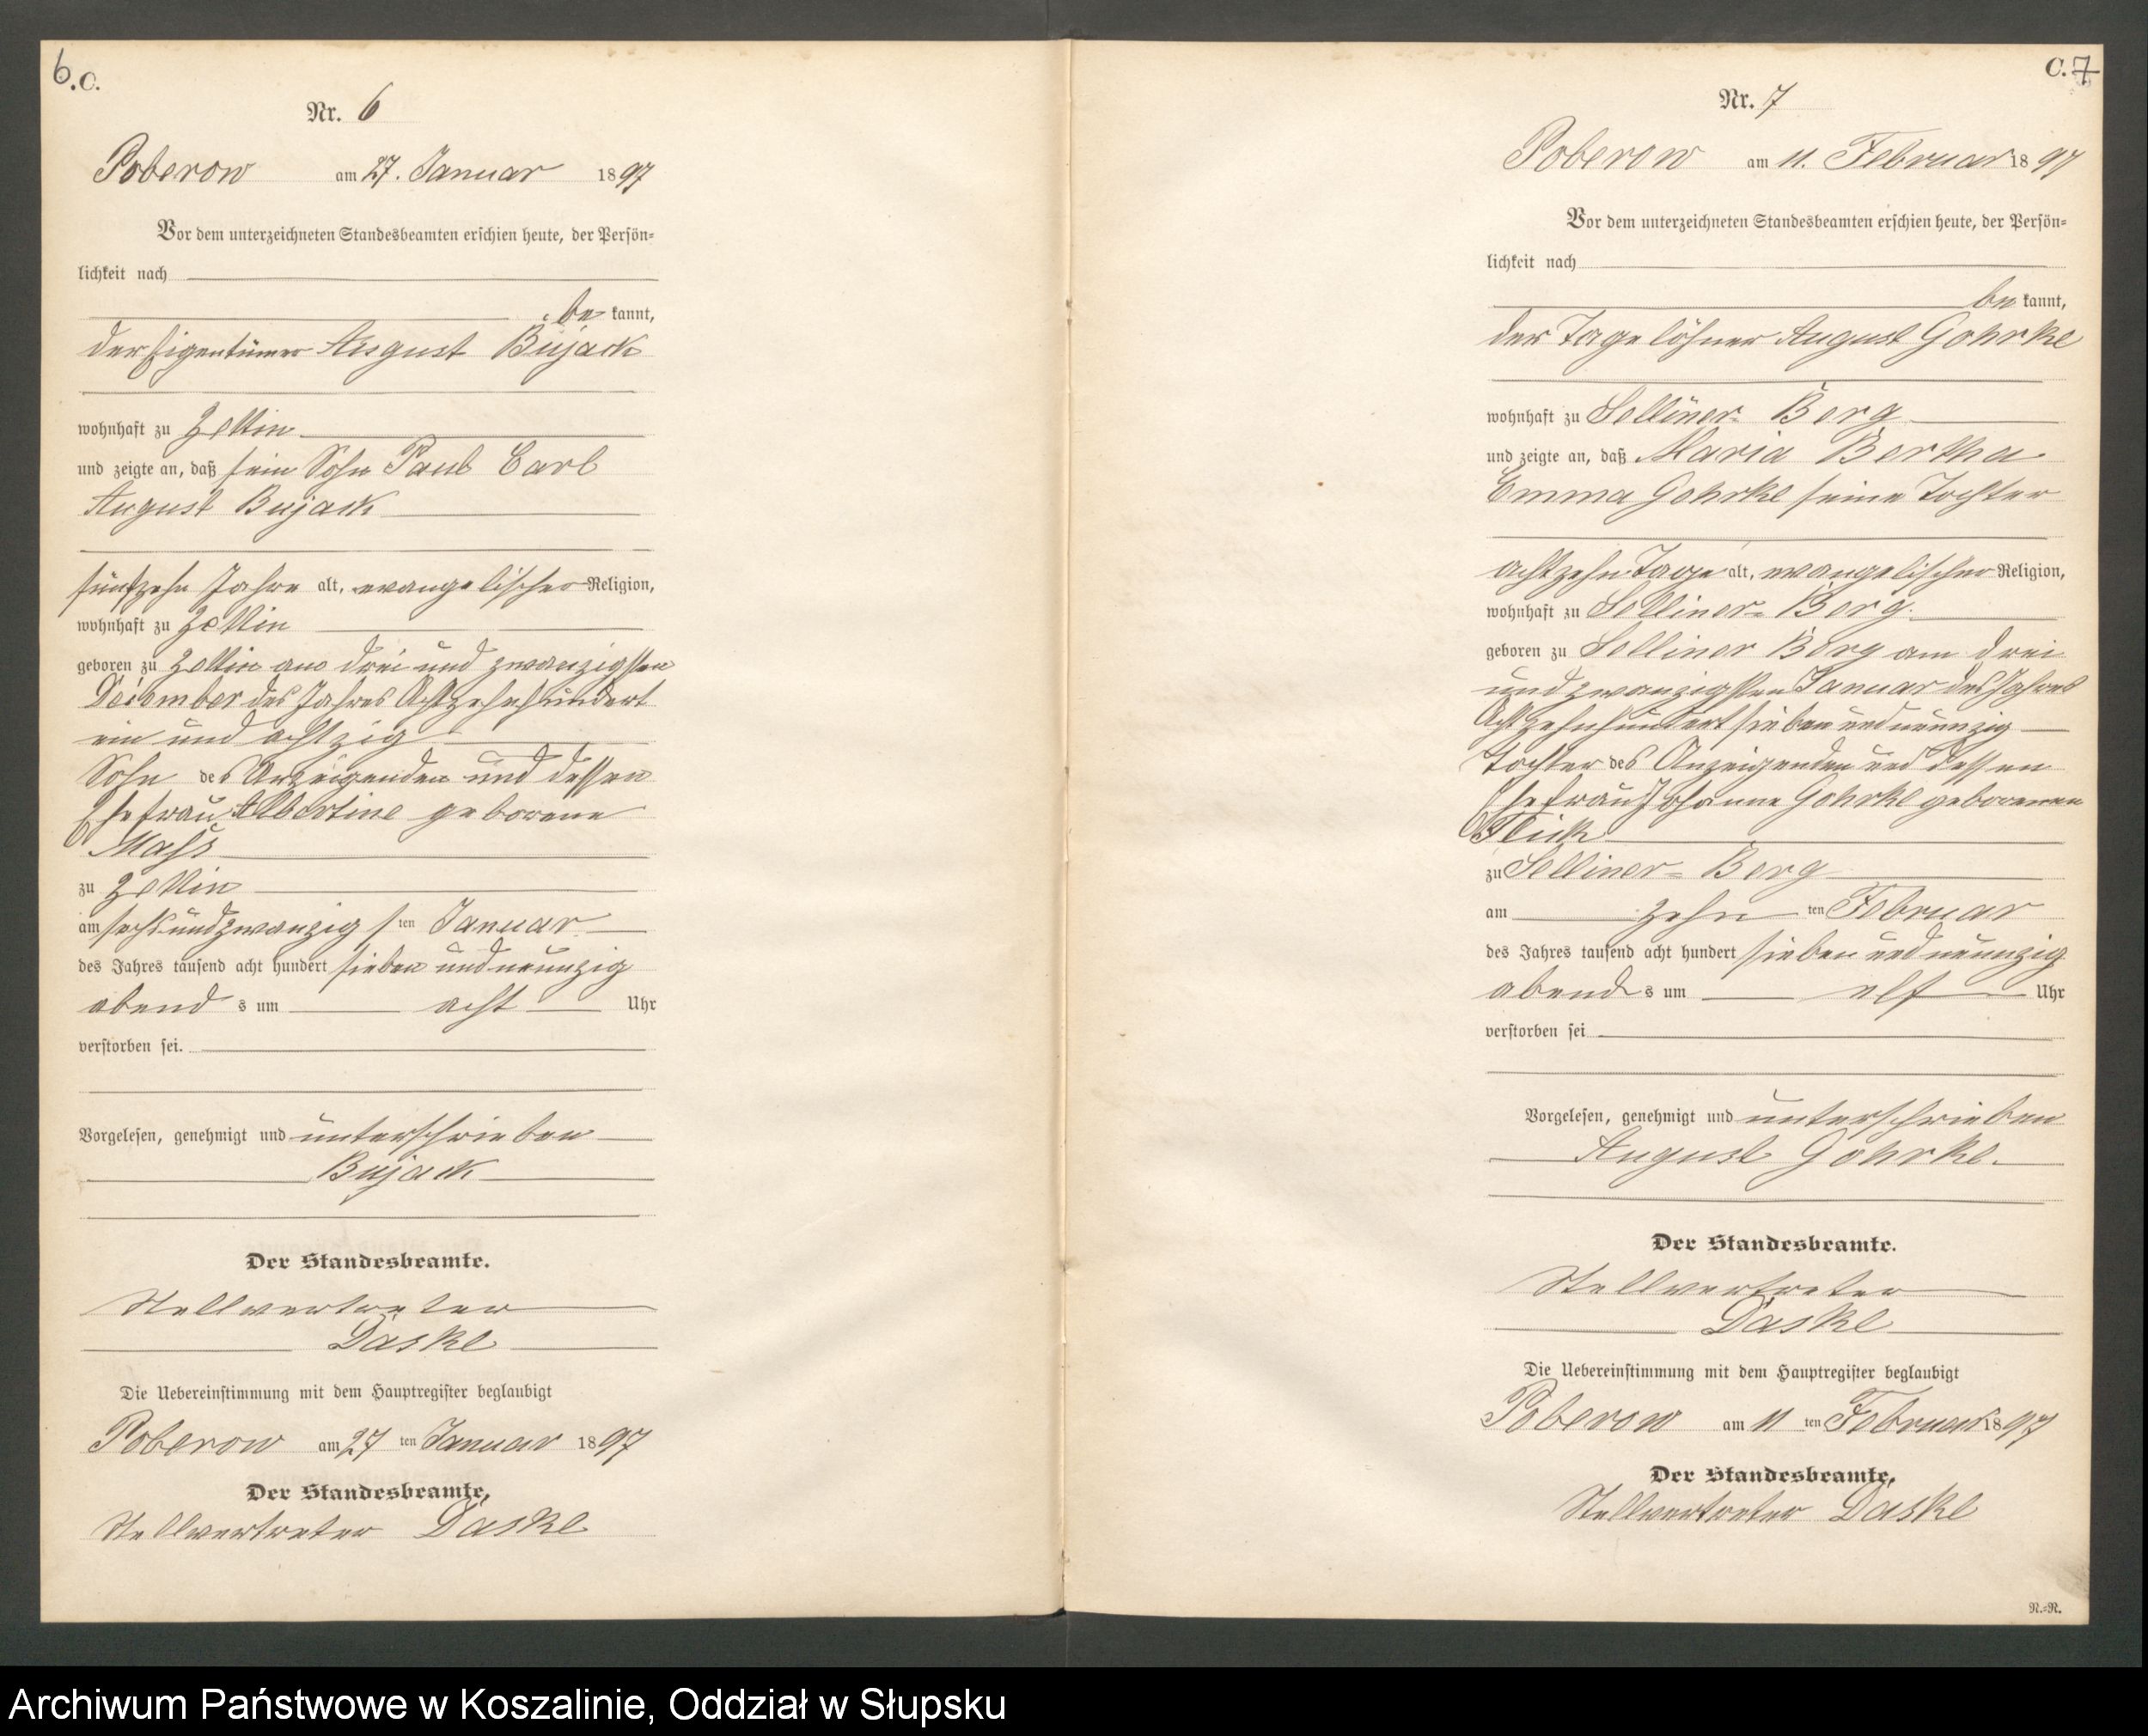 6.
C.
Nr. 6
Poberow am 27. Januar 1897
Vor dem unterzeichneten Standesbeamten erschien heute, der Persön=
lichkeit nach
be kannt,
der Eigentümer August Bujack
wohnhaft zu Zettin
und zeigte an, daß sein Sohn Paul Carl
August Bujack
fünfzehn Jahre alt, evangelischer Religion,
wohnhaft zu Zettin
geboren zu Zettin am drei und zwanzigsten
December des Jahres Achtzehnhundert
ein und achtzig
Sohn des Anzeigenden und dessen
Ehefrau Albertine geborene
Mass
zu Zettin
am sechsundzwanzigsten Januar
des Jahres tausend acht hundert sieben und neunzig
abends um acht Uhr
verstorben sei.
Vorgelesen, genehmigt und unterschrieben
Bujack
Der Standesbeamte.
Stellvertreter
Däske
Die Uebereinstimmung mit dem Hauptregister beglaubigt
Poberow am 27 ten Januar 1897
Der Standesbeamte,
Stellvertreter Däske
C. 7
Nr. 7
Poberow am 11. Februar 1897
Vor dem unterzeichneten Standesbeamten erschien heute, der Persön=
lichkeit nach
be kannt,
der Tagelöhner August Gohrke
wohnhaft zu Selliner Berg
und zeigte an, daß Maria Bertha
Emma Gohrke seine Tochter
achtzehn Tage alt, evangelischer Religion,
wohnhaft zu Selliner= Berg
geboren zu Selliner Berg am drei
und zwanzigsten Januar des Jahres
Achtzehnhundert sieben und neunzig
Tochter des Anzeigenden und dessen
Ehefrau Johanne Gohrke geborenen
Flick
zu Selliner= Berg
am zehn ten Februar
des Jahres tausend acht hundert sieben und neunzig
abends um elf Uhr
verstorben sei
Vorgelesen, genehmigt und unterschrieben
August Gohrke.
Der Standesbeamte.
Stellvertreter
Däske
Die Uebereinstimmung mit dem Hauptregister beglaubigt
Poberow am 11 ten Februar 1897
Der Standesbeamte,
Stellvertreter Däske
R.=R.
Archiwum Państwowe w Koszalinie, Oddział w Słupsku